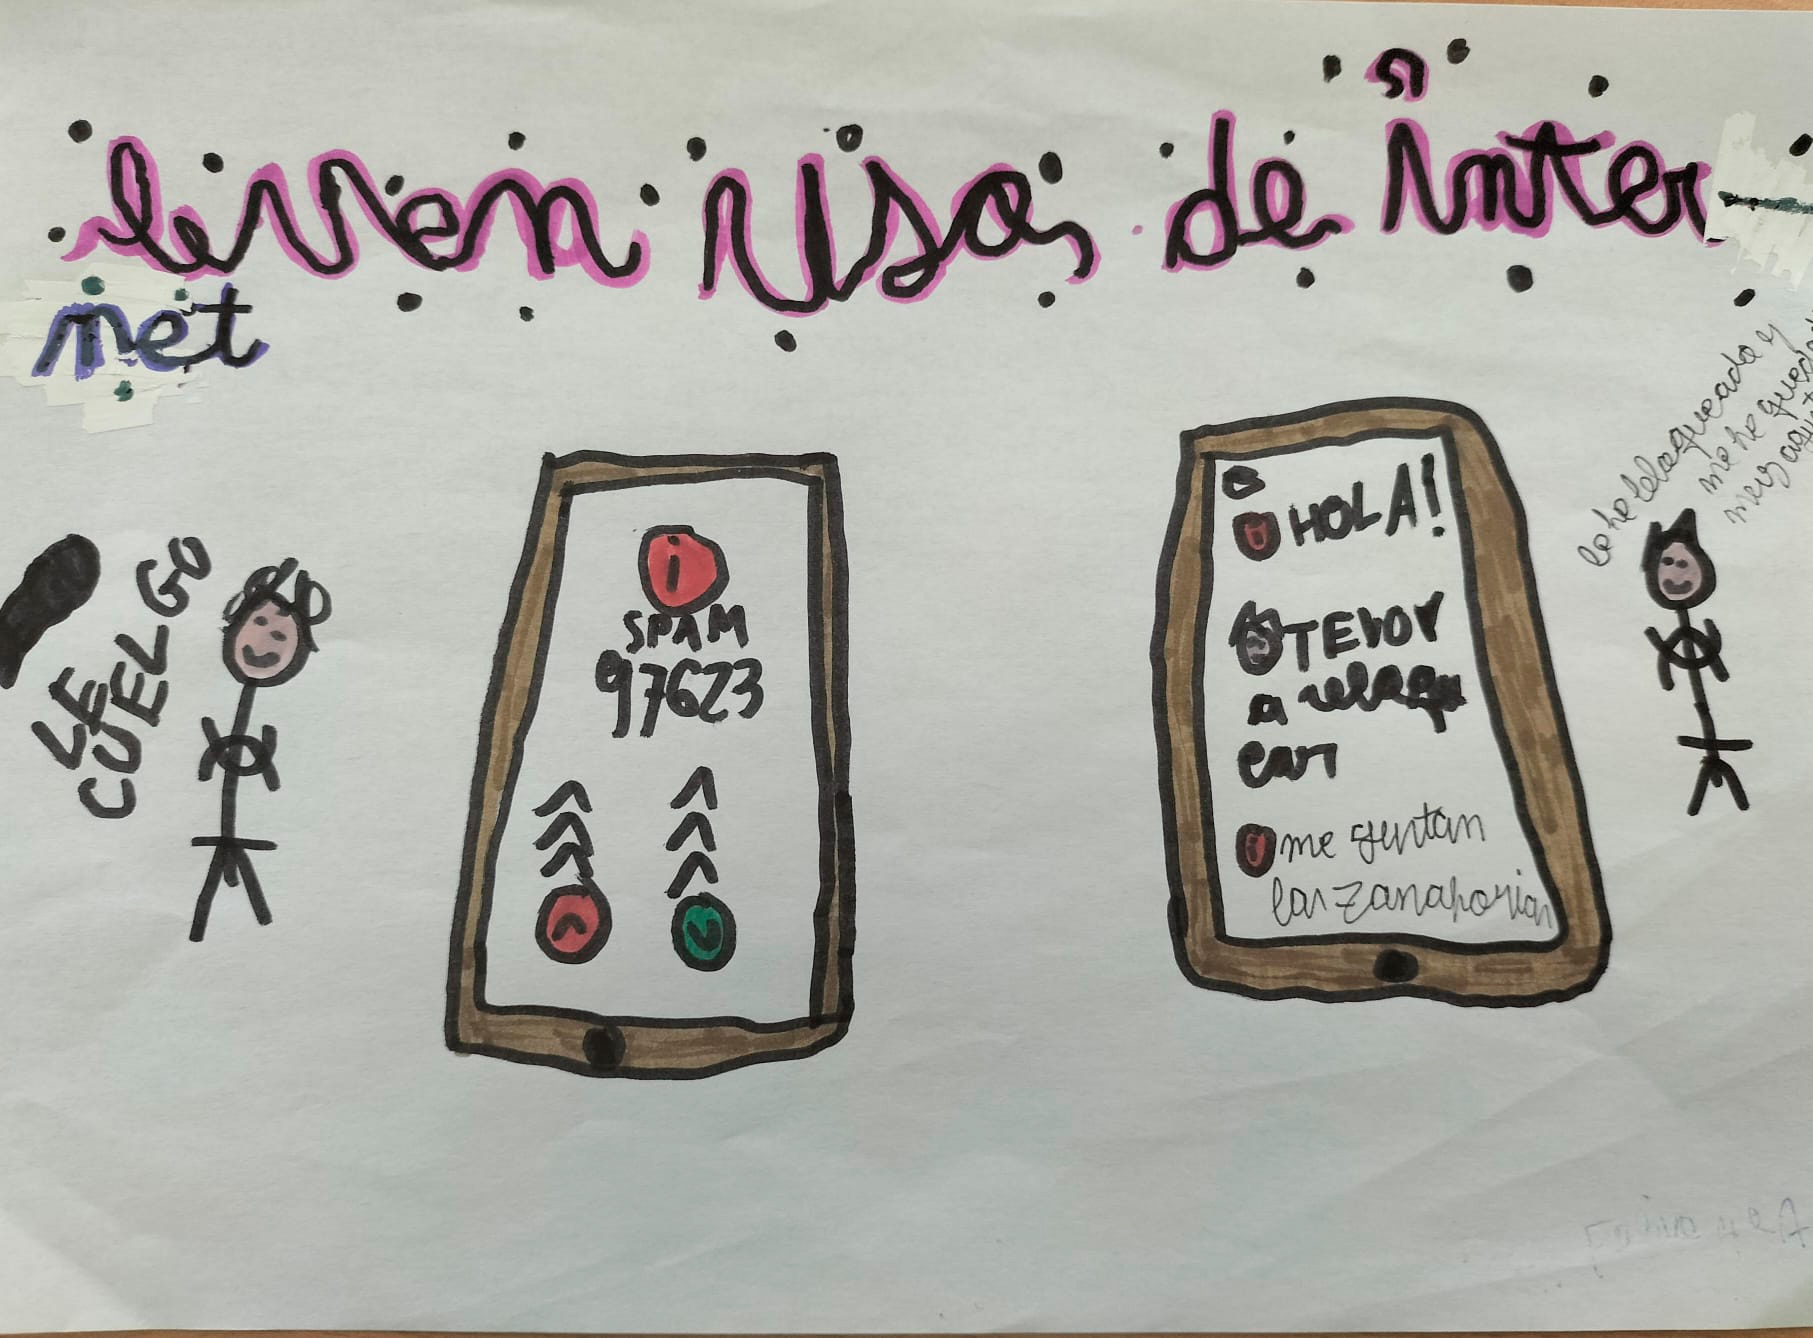 buen uso de inter-
net
LE
CUELGO
i
SPAM
97623
i HOLA!
TEVOY
ear
i me gustan
las zanahorias
lo he bloqueado y
me he quedado
muy
4ºA